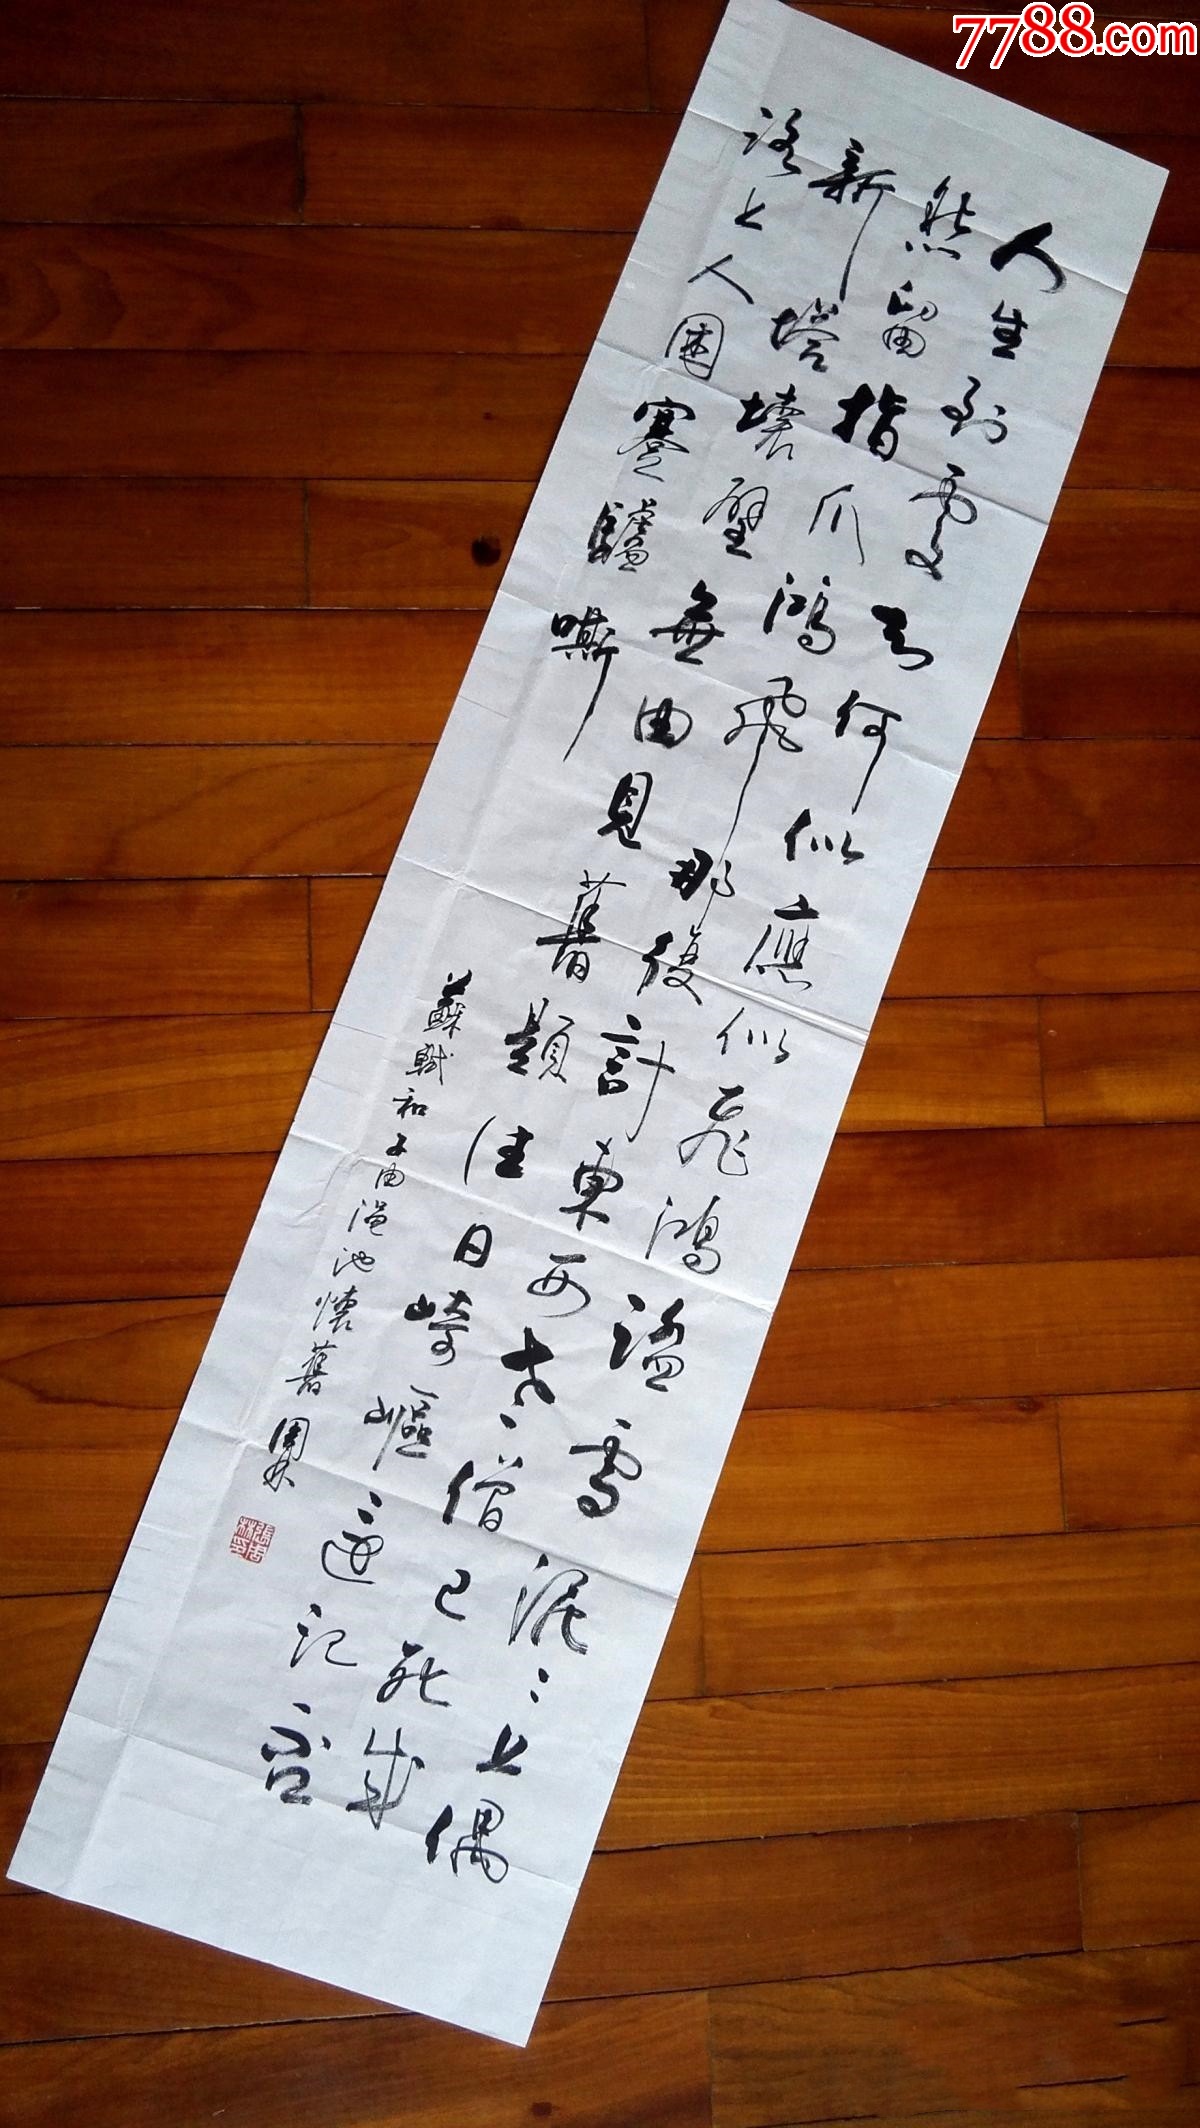 人生到處知何似應似飛鴻踏雪泥〻上偶
然留指爪鴻飛那復計東西老僧已死成
新塔壞壁無由見舊題往日崎嶇還記否
路上人困蹇驢嘶
蘇軾和子由澠池懷舊 國林
7788.com